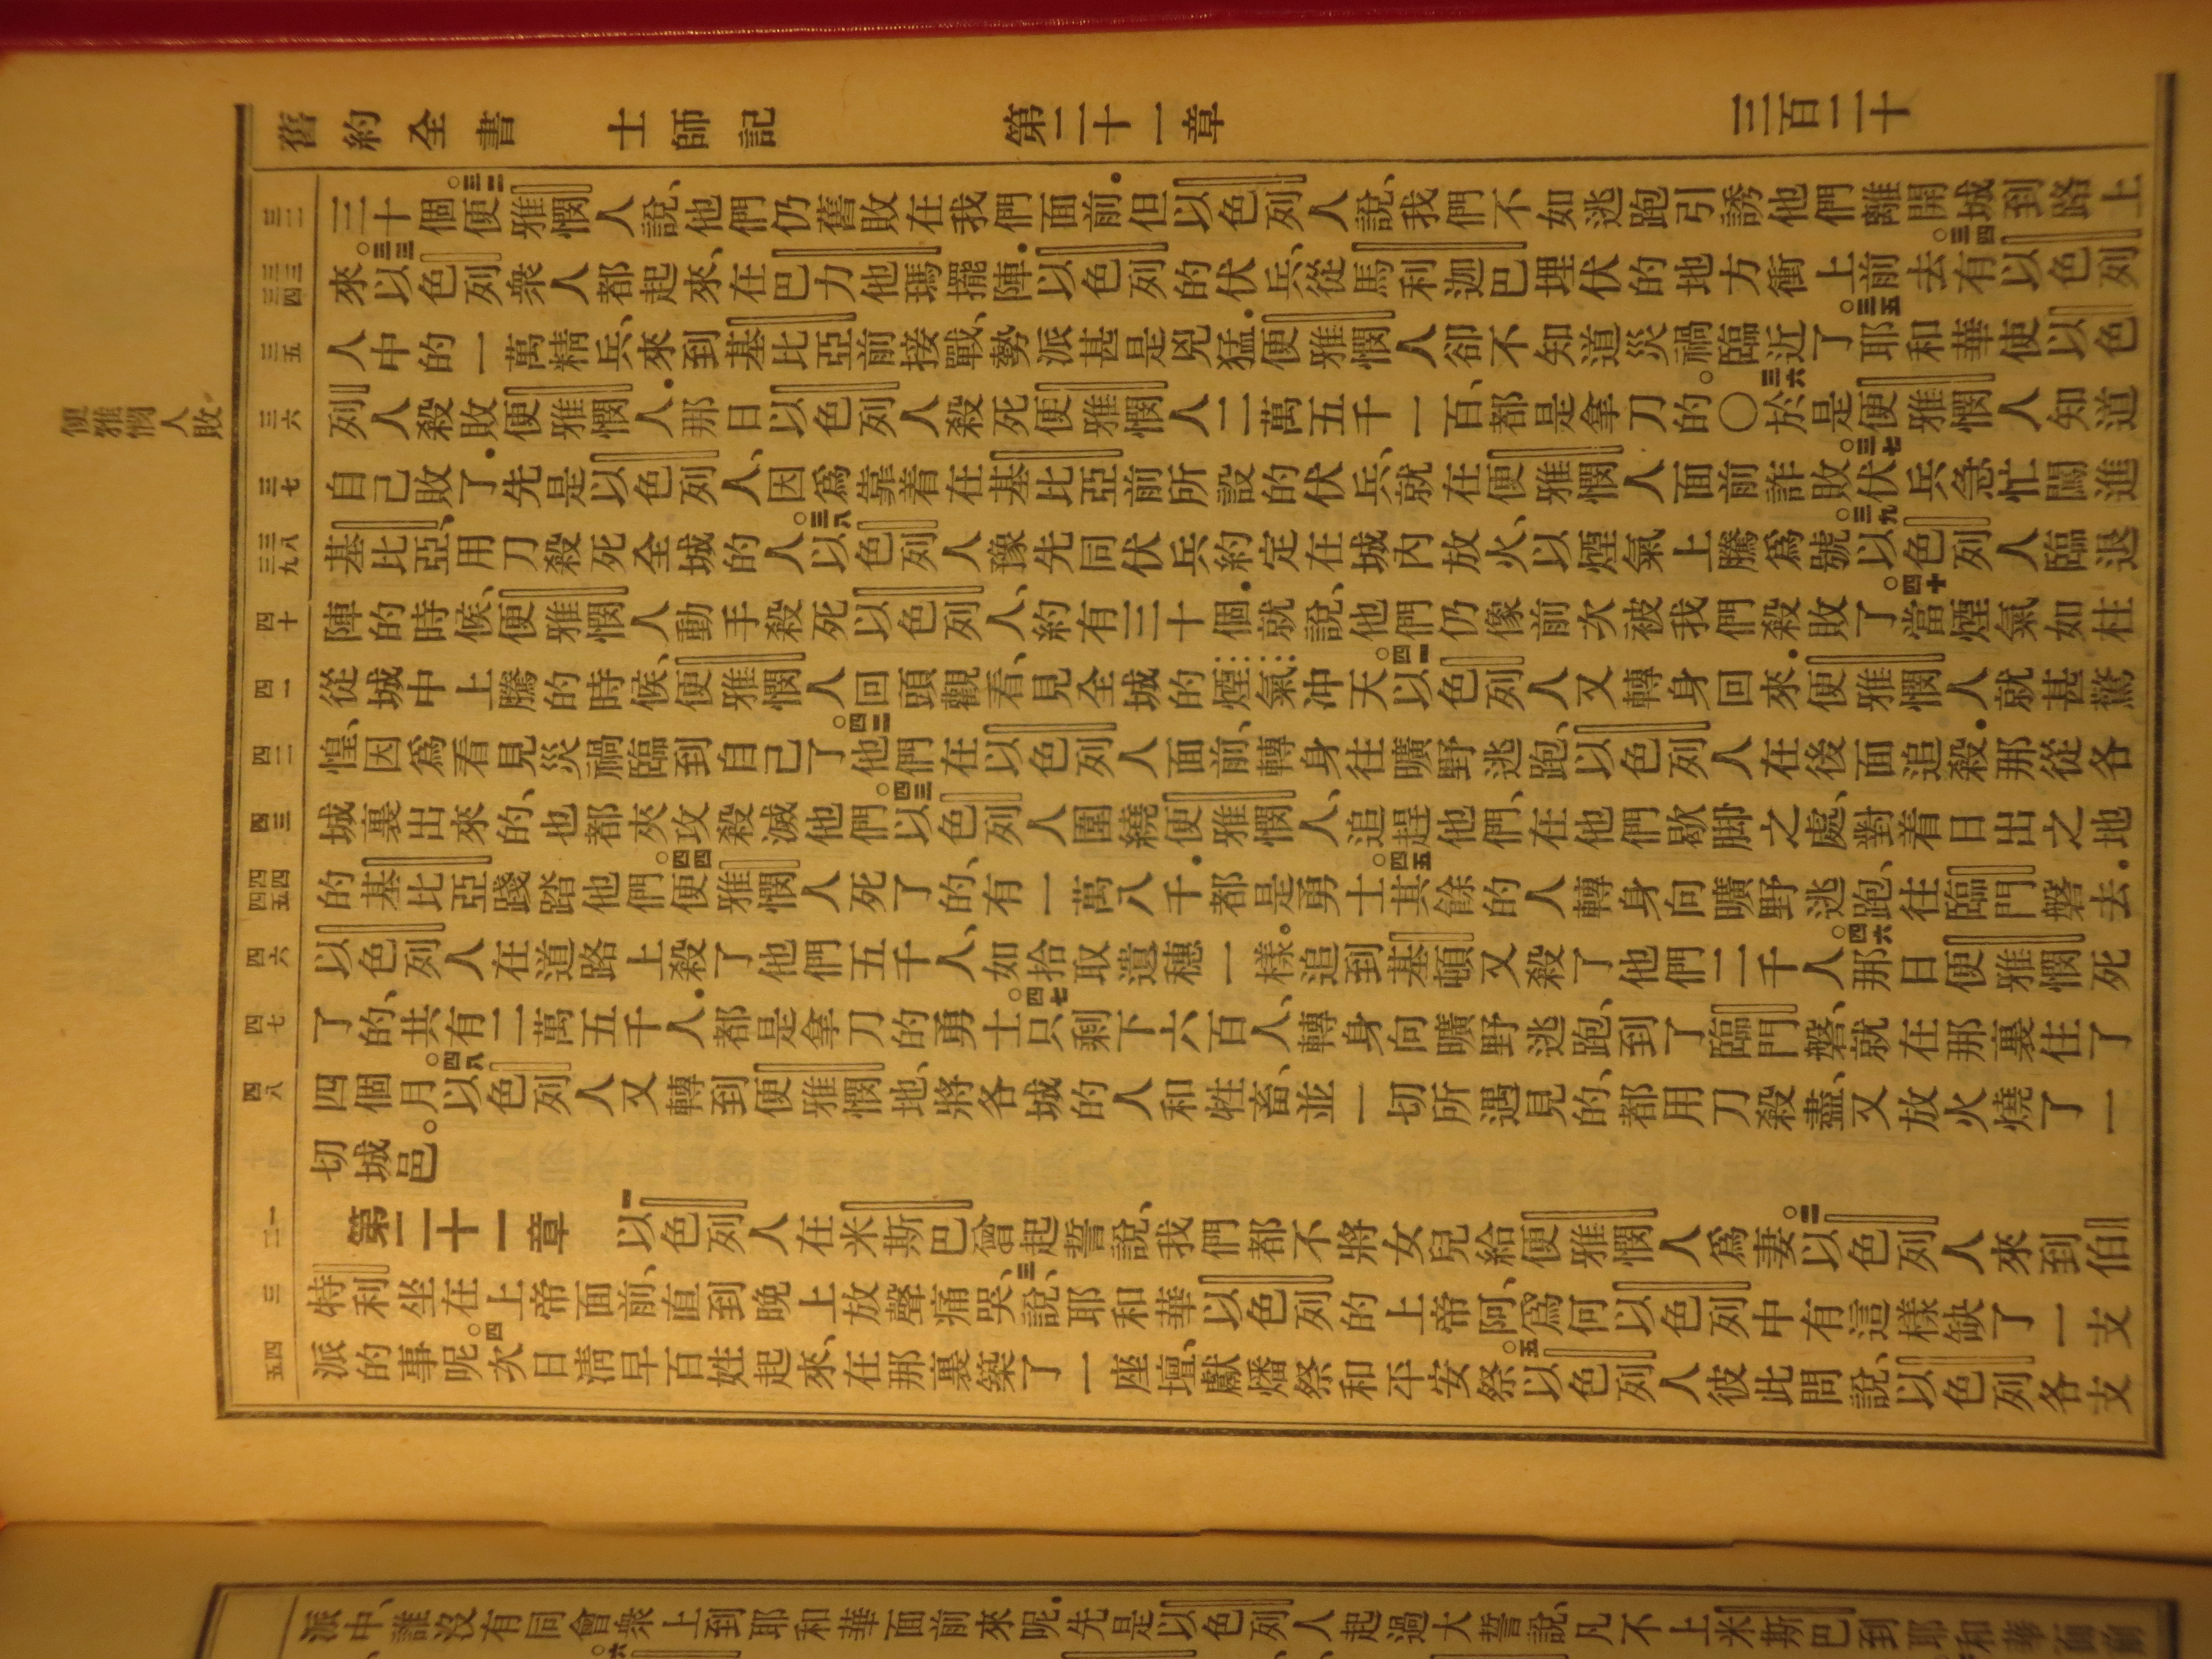 舊約全書 士師記 第二十一章 三百二十
三十個。三二便雅憫人說、他們仍舊敗在我們面前．但以色列人說、我們不如逃跑引誘他們離開城到路上
來。三三以色列衆人都起來、在巴力他瑪擺陣．以色列的伏兵、從馬利迦巴埋伏的地方衝上前去。三四有以色列
人中的一萬精兵、來到基比亞前接戰、勢派甚是兇猛．便雅憫人卻不知道災禍臨近了。三五耶和華使以色
列人殺敗便雅憫人．那日以色列人殺死便雅憫人二萬五千一百、都是拿刀的。〇三六於是便雅憫人知道
自己敗了．先是以色列人、因爲靠着在基比亞前所設的伏兵、就在便雅憫人面前詐敗。三七伏兵急忙闖進
基比亞、用刀殺死全城的人。三八以色列人豫先同伏兵約定在城內放火、以煙氣上騰爲號。三九以色列人臨退
陣的時候、便雅憫人動手殺死以色列人、約有三十個．就說、他們仍像前次被我們殺敗了。四十當煙氣如柱
從城中上騰的時候、便雅憫人回頭觀看、見全城的煙氣冲天。四一以色列人又轉身回來．便雅憫人就甚驚
惶、因爲看見災禍臨到自己了。四二他們在以色列人面前、轉身往曠野逃跑、以色列人在後面追殺．那從各
城裏出來的、也都夾攻殺滅他們。四三以色列人圍繞便雅憫人、追趕他們、在他們歇脚之處、對着日出之地
的基比亞踐踏他們。四四便雅憫人死了的、有一萬八千．都是勇士。四五其餘的人轉身向曠野逃跑、往臨門磐去．
以色列人在道路上殺了他們五千人、如拾取遺穗一樣。追到基頓又殺了他們二千人。四六那日便雅憫死
了的、共有二萬五千人．都是拿刀的勇士。四七只剩下六百人、轉身向曠野逃跑、到了臨門磐、就在那裏住了
四個月。四八以色列人又轉到便雅憫地、將各城的人和牲畜、並一切所遇見的、都用刀殺盡、又放火燒了一
切城邑。
第二十一章 一以色列人在米斯巴曾起誓說、我們都不將女兒給便雅憫人爲妻。二以色列人來到伯
特利坐在上帝面前、直到晚上放聲痛哭、三說、耶和華以色列的上帝阿、爲何以色列中有這樣缺了一支
派的事呢。四次日清早百姓起來、在那裏築了一座壇、獻燔祭和平安祭。五以色列人彼此問說、以色列各支
三二
三三 三四
三五
三六
三七
三八 三九
四十
四一
四二
四三
四四 四五
四六
四七
四八
一 二
三
四 五
便雅憫人敗
派中、誰沒有同會衆上到耶和華面前來呢．先是以色列人起過大誓說、凡不上米斯巴到耶和華面前